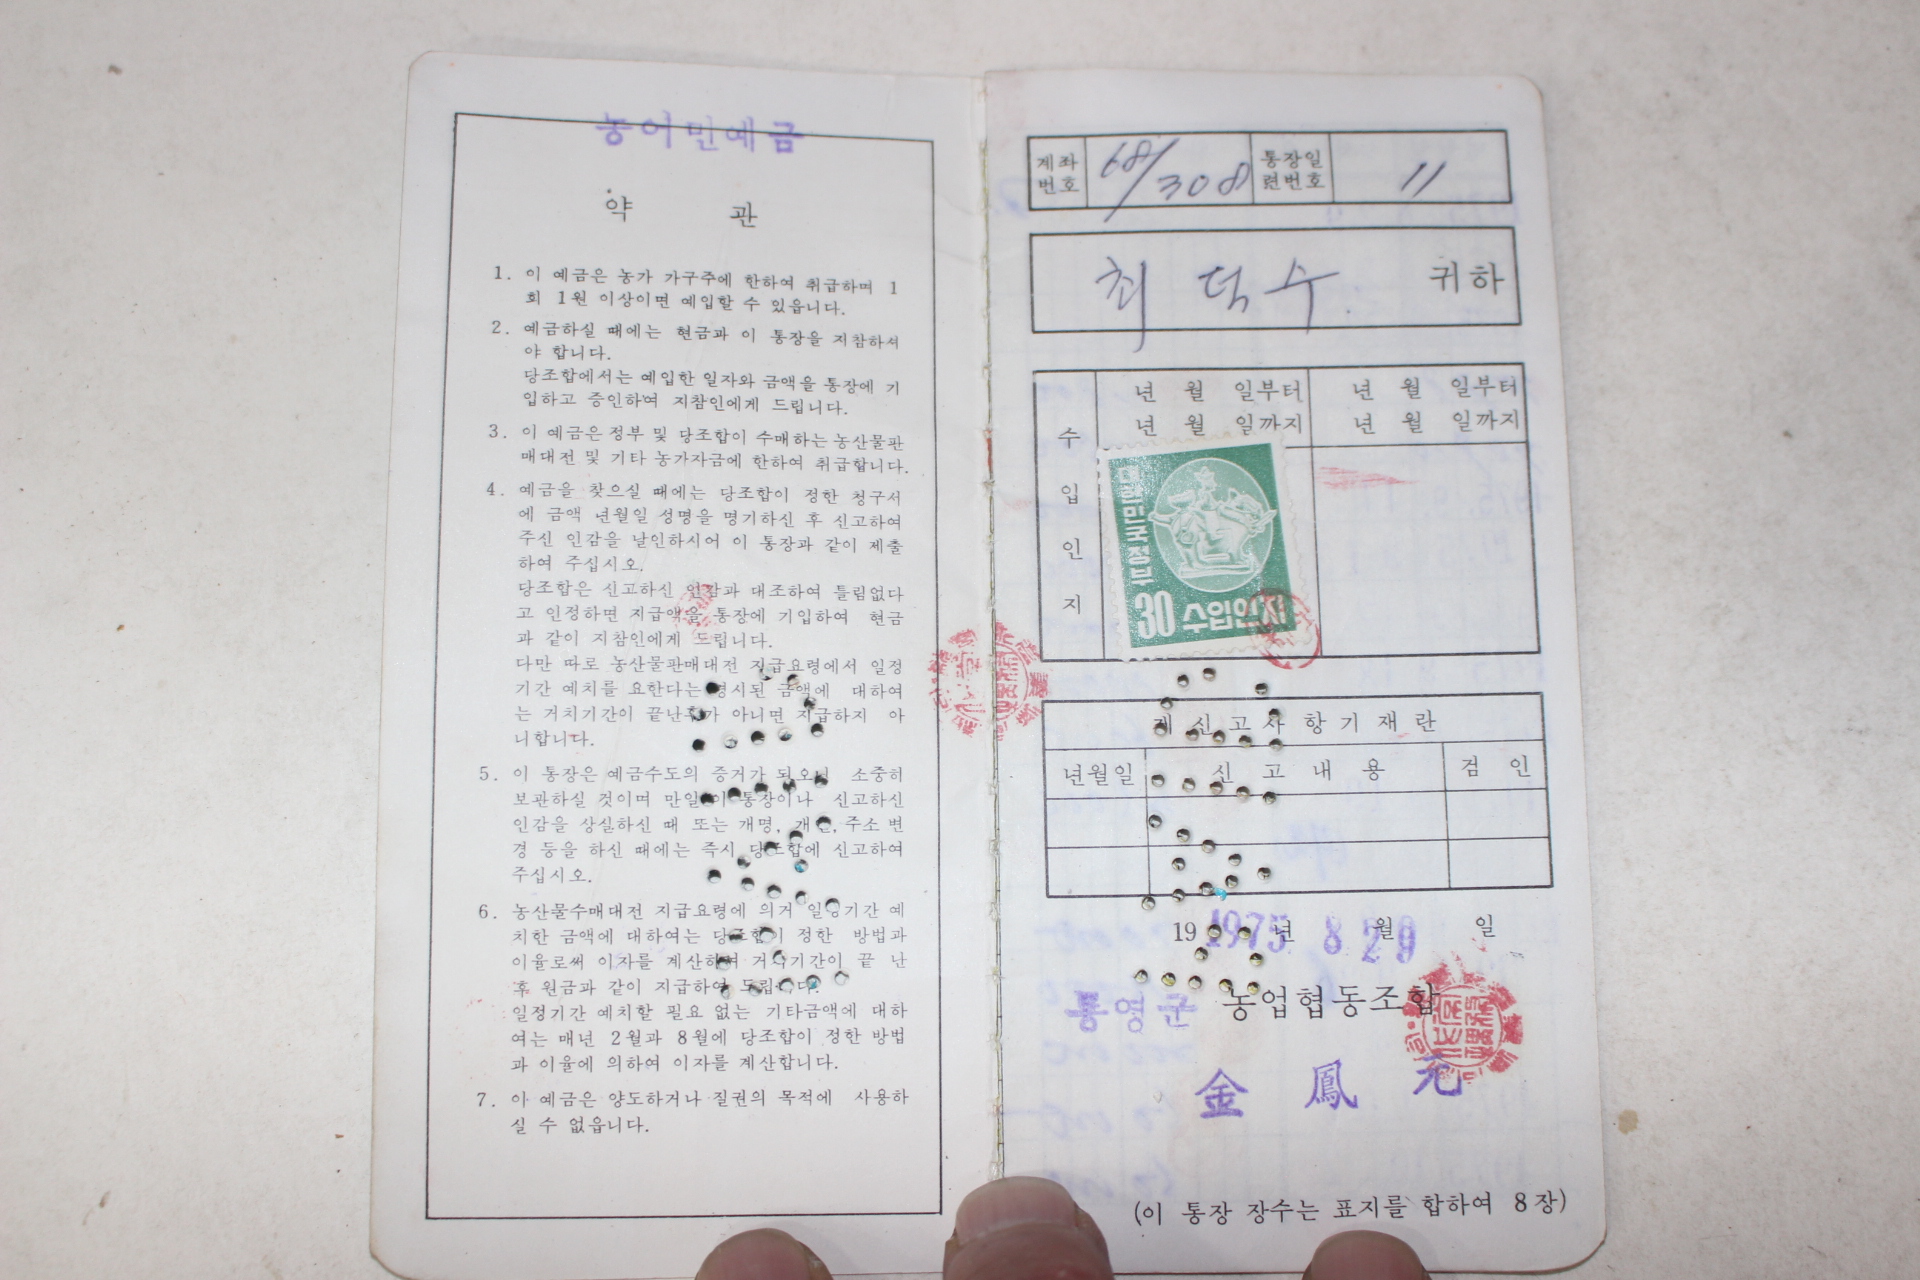 농어민예금
약 관
1. 이 예금은 농가 가구주에 한하여 취급하며 1
회 1원 이상이면 예입할 수 있읍니다.
2. 예금하실 때에는 현금과 이 통장을 지참하셔
야 합니다.
당조합에서는 예입한 일자와 금액을 통장에 기
입하고 증인하여 지참인에게 드립니다.
3. 이 예금은 정부 및 당조합이 수매하는 농산물판
매대전 및 기타 농가자금에 한하여 취급합니다.
4. 예금을 찾으실 때에는 당조합이 정한 청구서
에 금액 년월일 성명을 명기하신 후 신고하여
주신 인감을 날인하시어 이 통장과 같이 제출
하여 주십시오.
당조합은 신고하신 인감과 대조하여 틀림없다
고 인정하면 지급액을 통장에 기입하여 현금
과 같이 지참인에게 드립니다.
다만 따로 농산물판매대전 지급요령에서 일정
기간 예치를 요한다는 명시된 금액에 대하여
는 거치기간이 끝난후가 아니면 지급하지 아
니합니다.
5. 이 통장은 예금수도의 증거가 되오니 소중히
보관하실 것이며 만일 이 통장이나 신고하신
인감을 상실하신 때 또는 개명, 개인, 주소 변
경 등을 하신 때에는 즉시 당조합에 신고하여
주십시오.
6. 농산물수매대전 지급요령에 의거 일정기간 예
치한 금액에 대하여는 당조합이 정한 방법과
이율로써 이자를 계산하여 거치기간이 끝 난
후 원금과 같이 지급하여 드립니다.
일정기간 예치할 필요 없는 기타금액에 대하
여는 매년 2월과 8월에 당조합이 정한 방법
과 이율에 의하여 이자를 계산합니다.
7. 이 예금은 양도하거나 질권의 목적에 사용하
실 수 없읍니다.
계좌번호 68/308 통장일련번호 11
최덕수 귀하
수입인지
년 월 일부터 년 월 일부터
년 월 일까지 년 월 일까지
대한민국정부
30 수입인지
제신고사항기재란
년월일 신고내용 검인
19 1975 년 8 월 29 일
통영군 농업협동조합
金鳳元
(이 통장 장수는 표지를 합하여 8장)